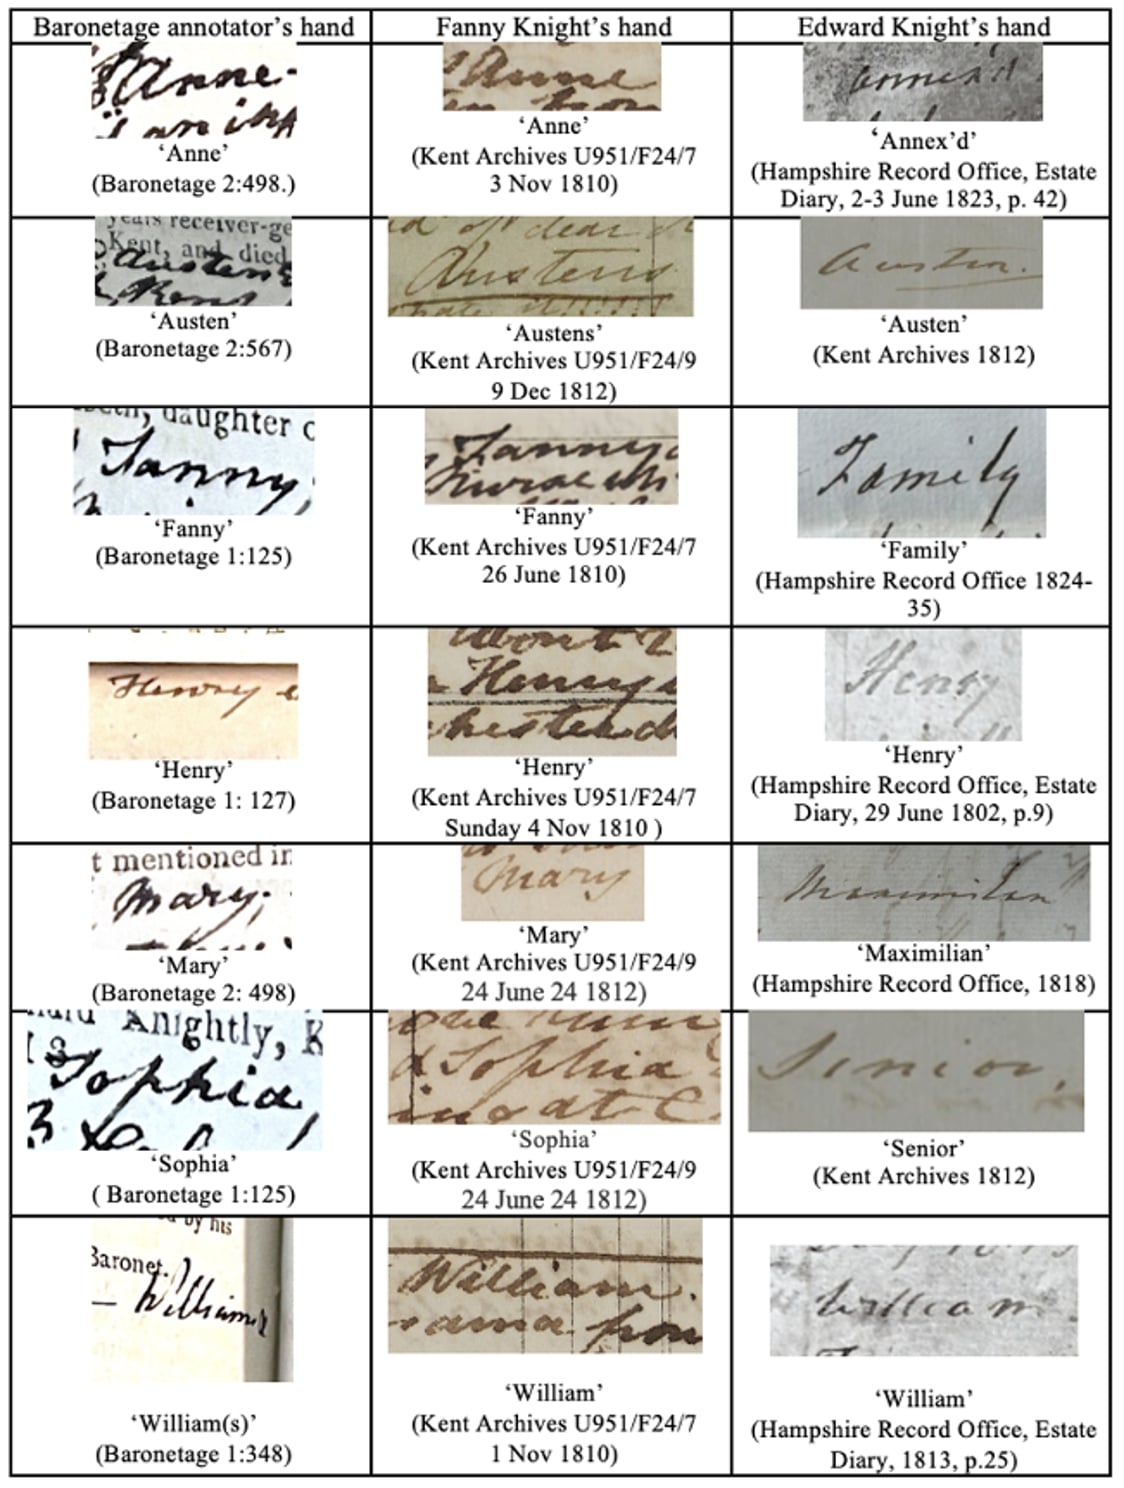 Baronetage annotator's hand
Fanny Knight's hand
Edward Knight's hand
Anne-
Anne
annex'd
'Anne'
(Baronetage 2:498.)
'Anne'
(Kent Archives U951/F24/7
3 Nov 1810)
'Annex'd'
(Hampshire Record Office, Estate
Diary, 2-3 June 1823, p. 42)
years receiver-ge
Kent, and died
Austen
Kent
Austens
Austen.
'Austen'
(Baronetage 2:567)
'Austens'
(Kent Archives U951/F24/9
9 Dec 1812)
'Austen'
(Kent Archives 1812)
daughter
Fanny
Fanny
Family
'Fanny'
(Baronetage 1:125)
'Fanny'
(Kent Archives U951/F24/7
26 June 1810)
'Family'
(Hampshire Record Office 1824-
35)
Henry
about
Henry
Henry
'Henry'
(Baronetage 1: 127)
'Henry'
(Kent Archives U951/F24/7
Sunday 4 Nov 1810 )
'Henry'
(Hampshire Record Office, Estate
Diary, 29 June 1802, p.9)
t mentioned in
Mary.
Mary
Maximilian
'Mary'
(Baronetage 2: 498)
'Mary'
(Kent Archives U951/F24/9
24 June 24 1812)
'Maximilian'
(Hampshire Record Office, 1818)
Knightly, K
Sophia
Sophia
at C
Senior,
'Sophia'
( Baronetage 1:125)
'Sophia'
(Kent Archives U951/F24/9
24 June 24 1812)
'Senior'
(Kent Archives 1812)
by his
Baronet.
— Williams
William.
William
'William(s)'
(Baronetage 1:348)
'William'
(Kent Archives U951/F24/7
1 Nov 1810)
'William'
(Hampshire Record Office, Estate
Diary, 1813, p.25)